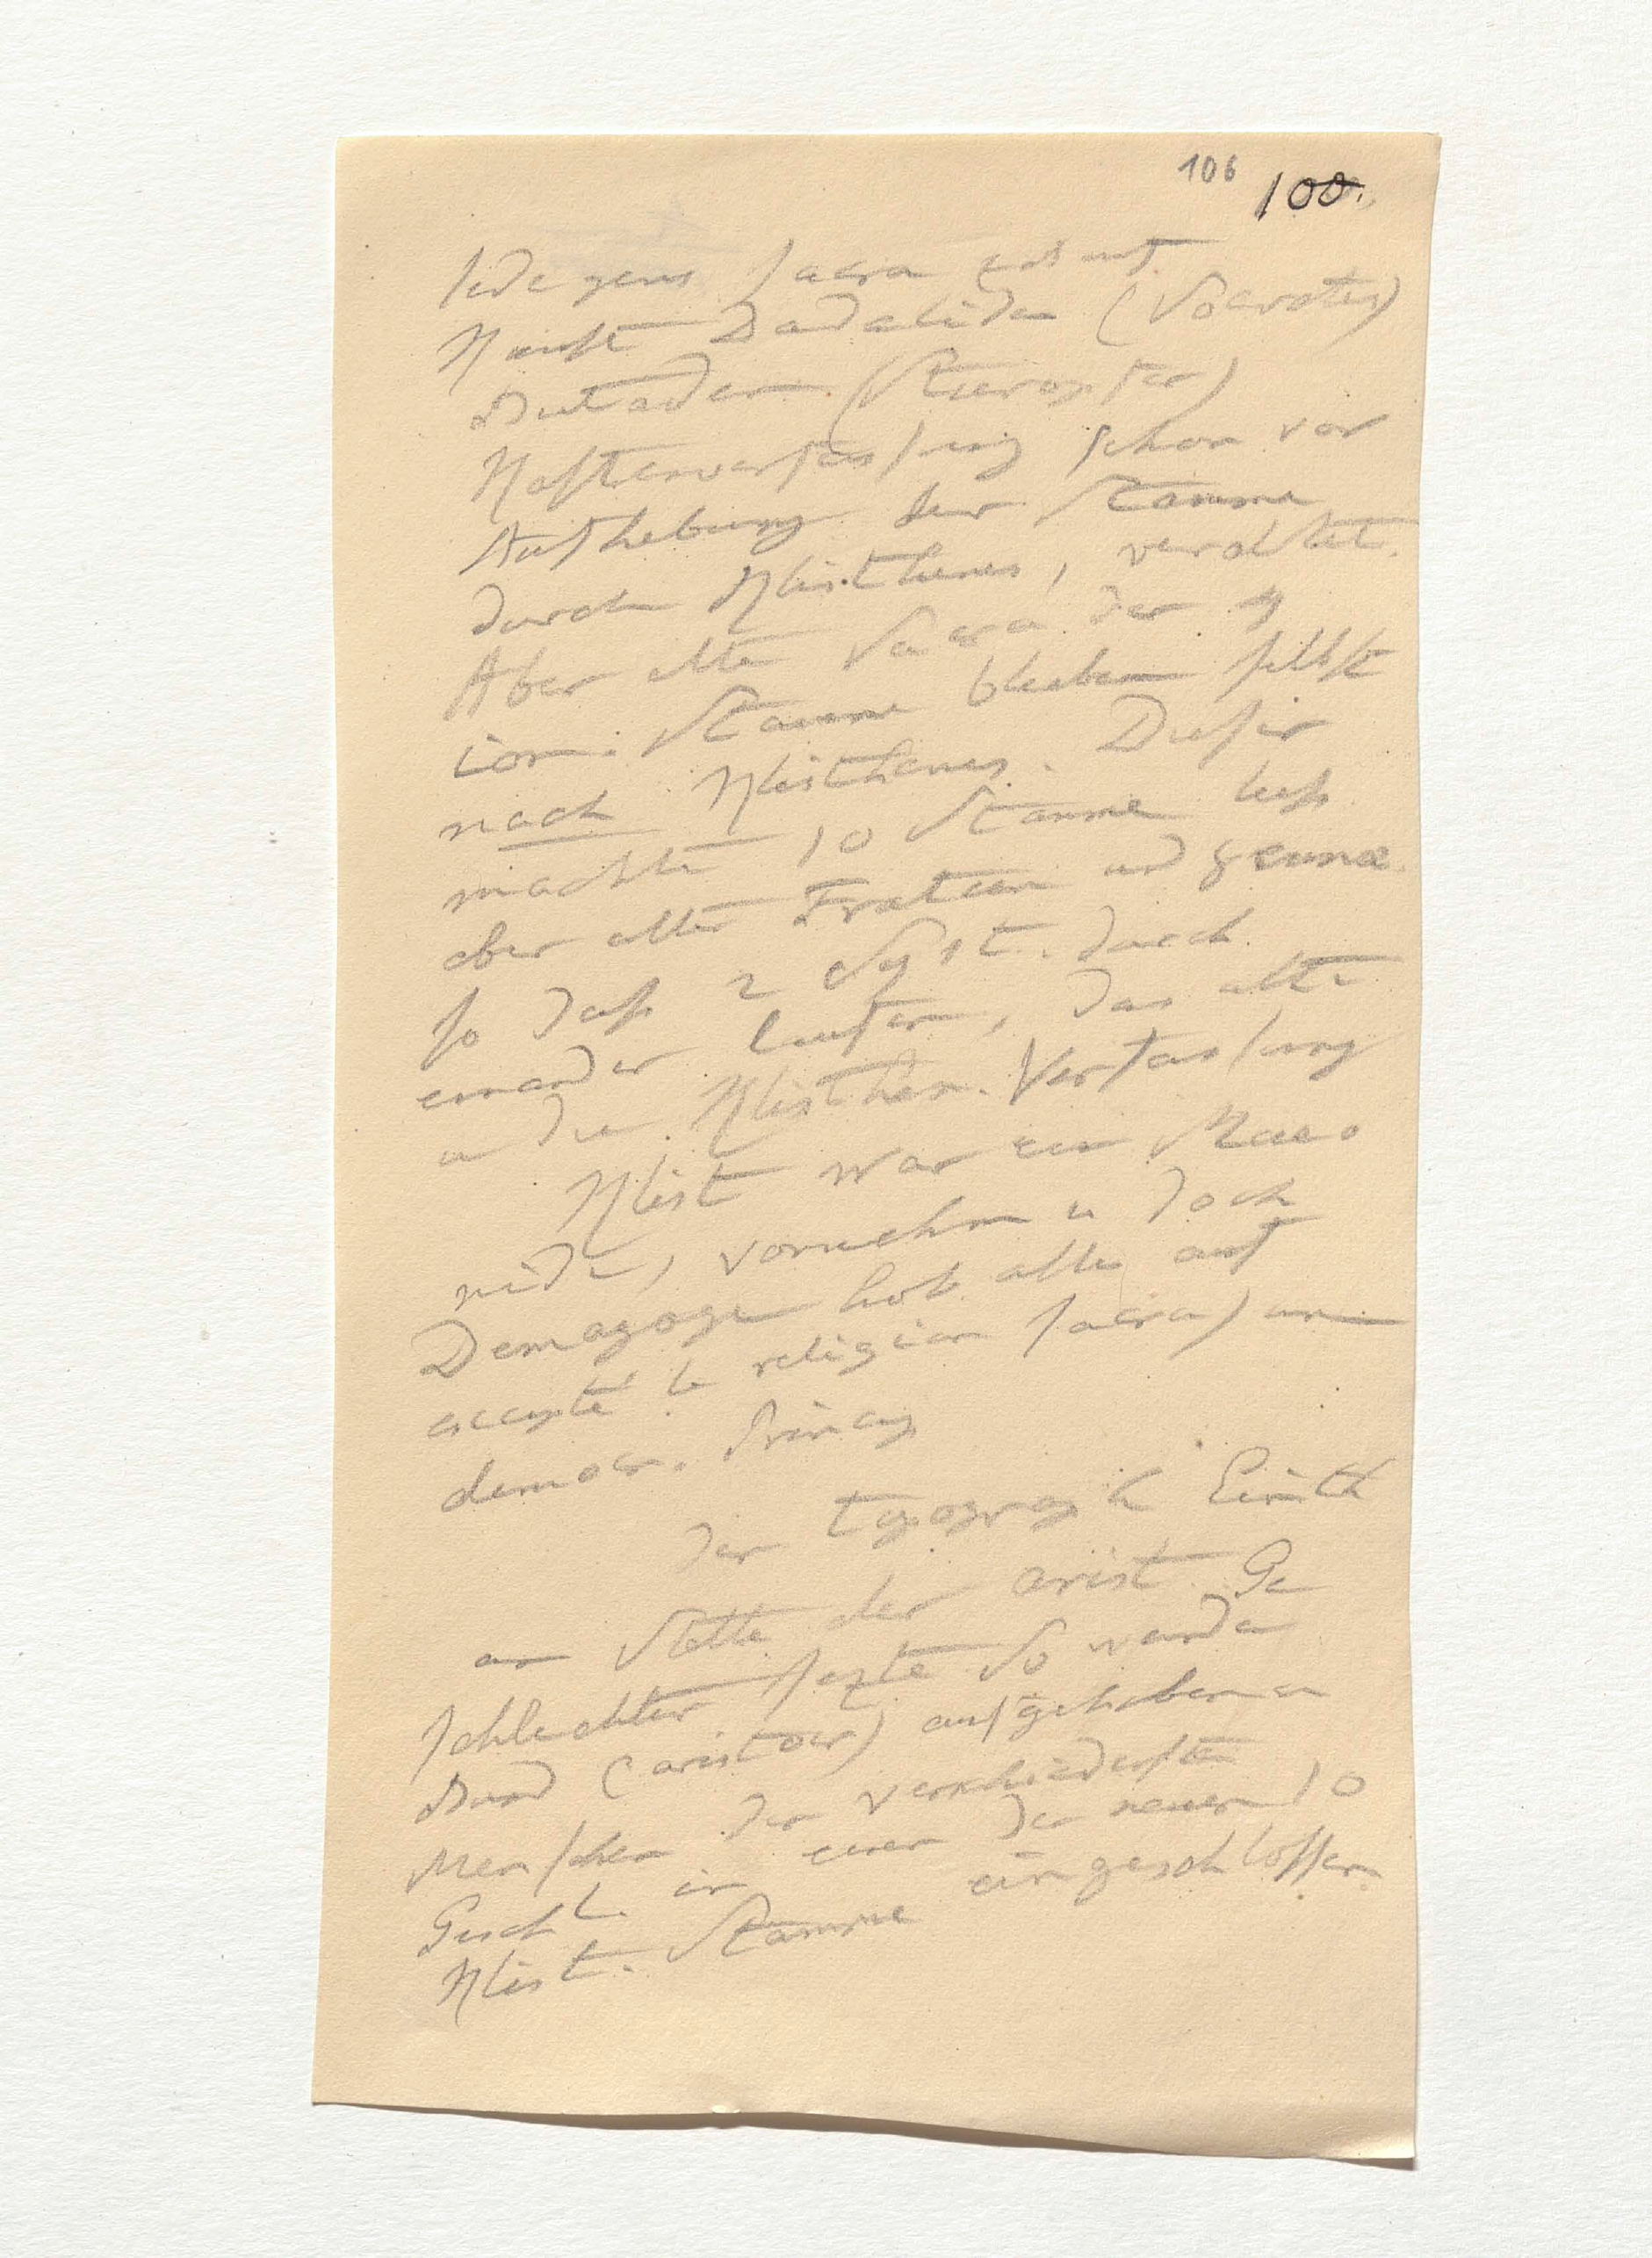 106 100.
jede gens sacra und
Kunst Dädaliden (Socrates)
Butaden (Stieropfer)
Kastenverfassung schon vor
Aufhebung der Stämme
durch Klisthenes, veraltet.
Aber alte Sacra der 4
ion. Stämme blieben selbst
nach Klisthenes. Dieser
machte 10 Stämme ließ
aber alte Fratien und gennae
so daß 2 Syst. durch
einander laufen, das alte
u die Klisthen. Verfassung
Klist war ein Alcmeo
nide, vornehm u doch
Demagoge hob alles auf
excepté le religion sacra)
democr. Princip
der topograph Einth
an Stelle der arist Ge
schlechter sezte So wurde
Band (aristocr) aufgehoben
Menschen der verschiedensten
Geschl. in einen der neuen 10
Klist. Stämme eingeschlossen